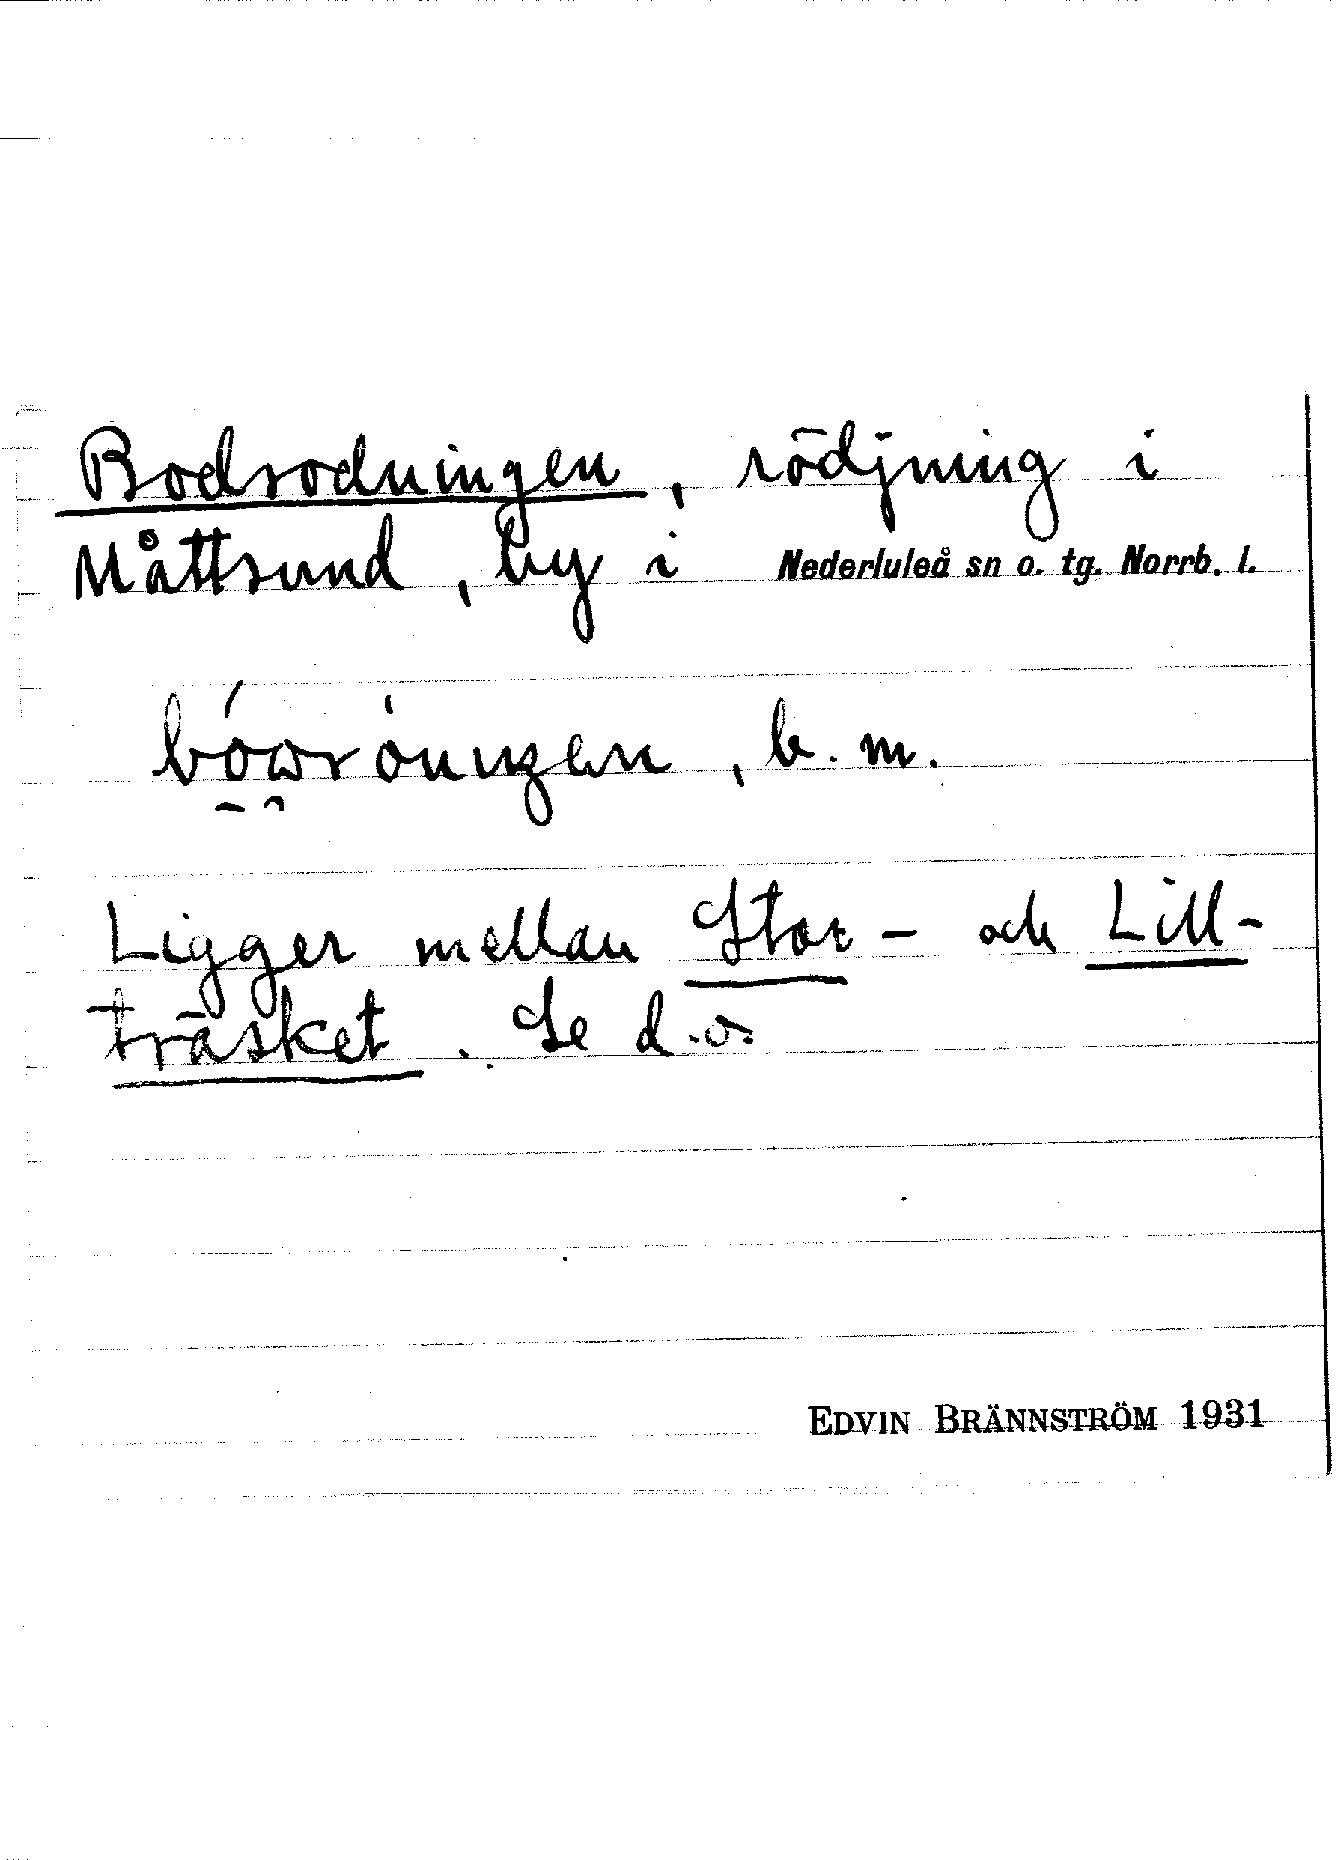 Bodrodningen, rödjning i
Måttsund, by i Nederluleå sn o. tg. Norrb. l.
, b. m.
Ligger mellan Stor- och Lill-
träsket. Se d.o.
EDVIN BRÄNNSTRÖM 1931